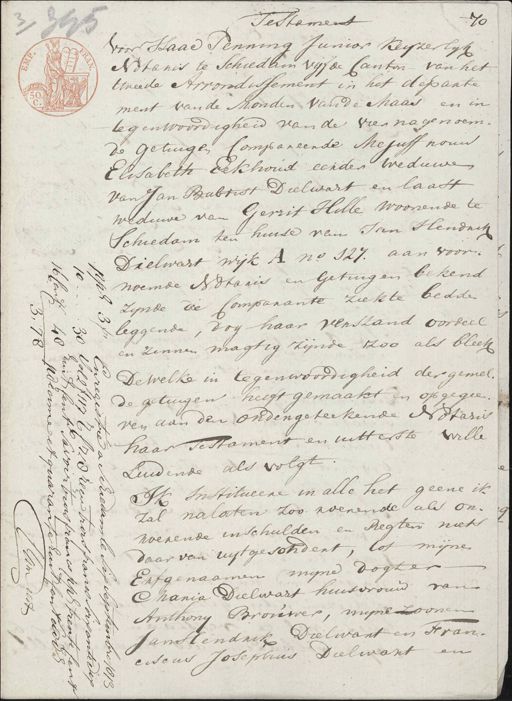 3/ 395
Testament
70
EMP. FRAN.
50 C.
Voor Isaac Penning Junior Keyzerlyk
Notaris te Schiedam vyfde Canton van het
tweede Arrondissement in het departe
ment van de Monden van de Maas en in
tegenwoordigheid van de vier nagenoem
de getuigen Compareerde Mejuffrouw
Elisabeth Eekhoud eerder weduwe
van Jan Babtist Dielwart en laast
weduwe van Gerrit Hille woonende te
Schiedam ten huise van Jan Hendrik
Dielwart wyk A no 327. aan voor-
noemde Notaris en Getuigen bekend
zynde de Comparante ziekte bedde
leggende, dog haar verstand oordeel
en zinnen magtig zynde zoo als bleek
Dewelke in tegenwoordigheid der gemel
de getuigen heeft gemaakt en opgegee
ven aan den ondergeteekende Notaris
haar Testament en uitterste wille
Luidende als volgt.
Ik Institueere in alle het geene ik
zal nalaten zoo roerende als on-
roerende inschulden en Regten niets
daar van uytgesondert, tot mijne
Erfgenaamen myne dogter
Maria Dielwart huisvrouw van
Anthony Brouwer, myne zoonen
Jan Hendrik Dielwart en Fran-
ciscus Josephus Dielwart en
3 fr
10 - 30
40
3.78
Enregistré a Schiedam le September 1813